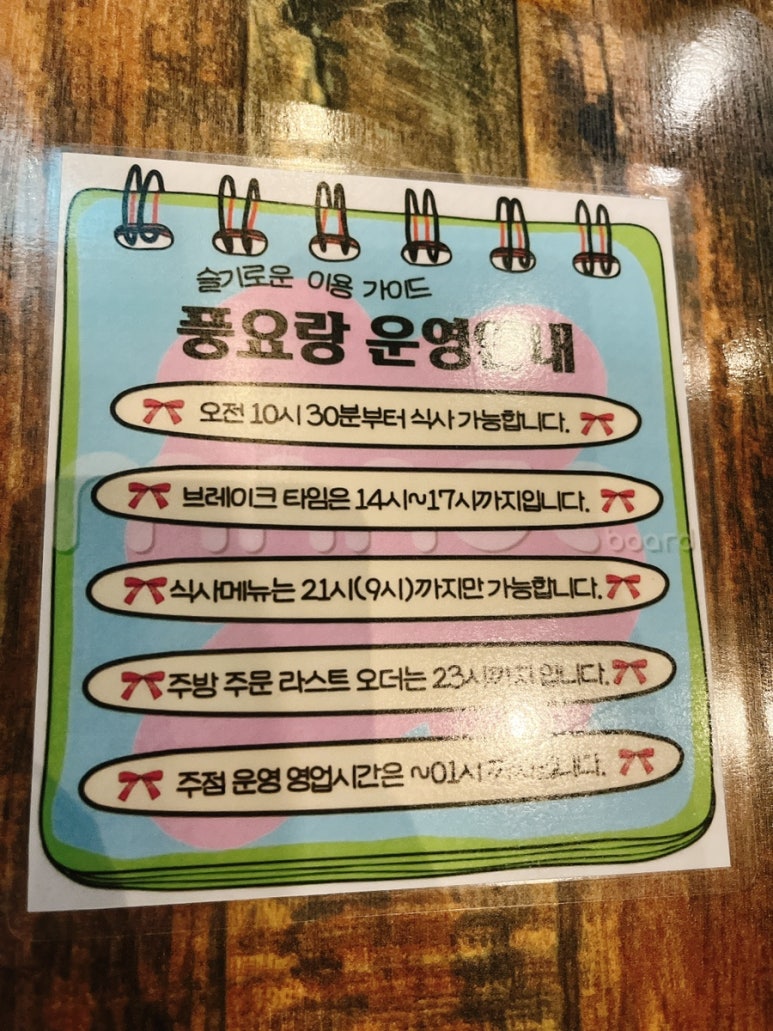 슬기로운 이용 가이드
풍요랑 운영안내
오전 10시 30분부터 식사 가능합니다.
브레이크 타임은 14시~17시까지입니다.
식사메뉴는 21시(9시)까지만 가능합니다.
주방 주문 라스트 오더는 23시까지 입니다.
주점 운영 영업시간은 ~01시 까지입니다.
board